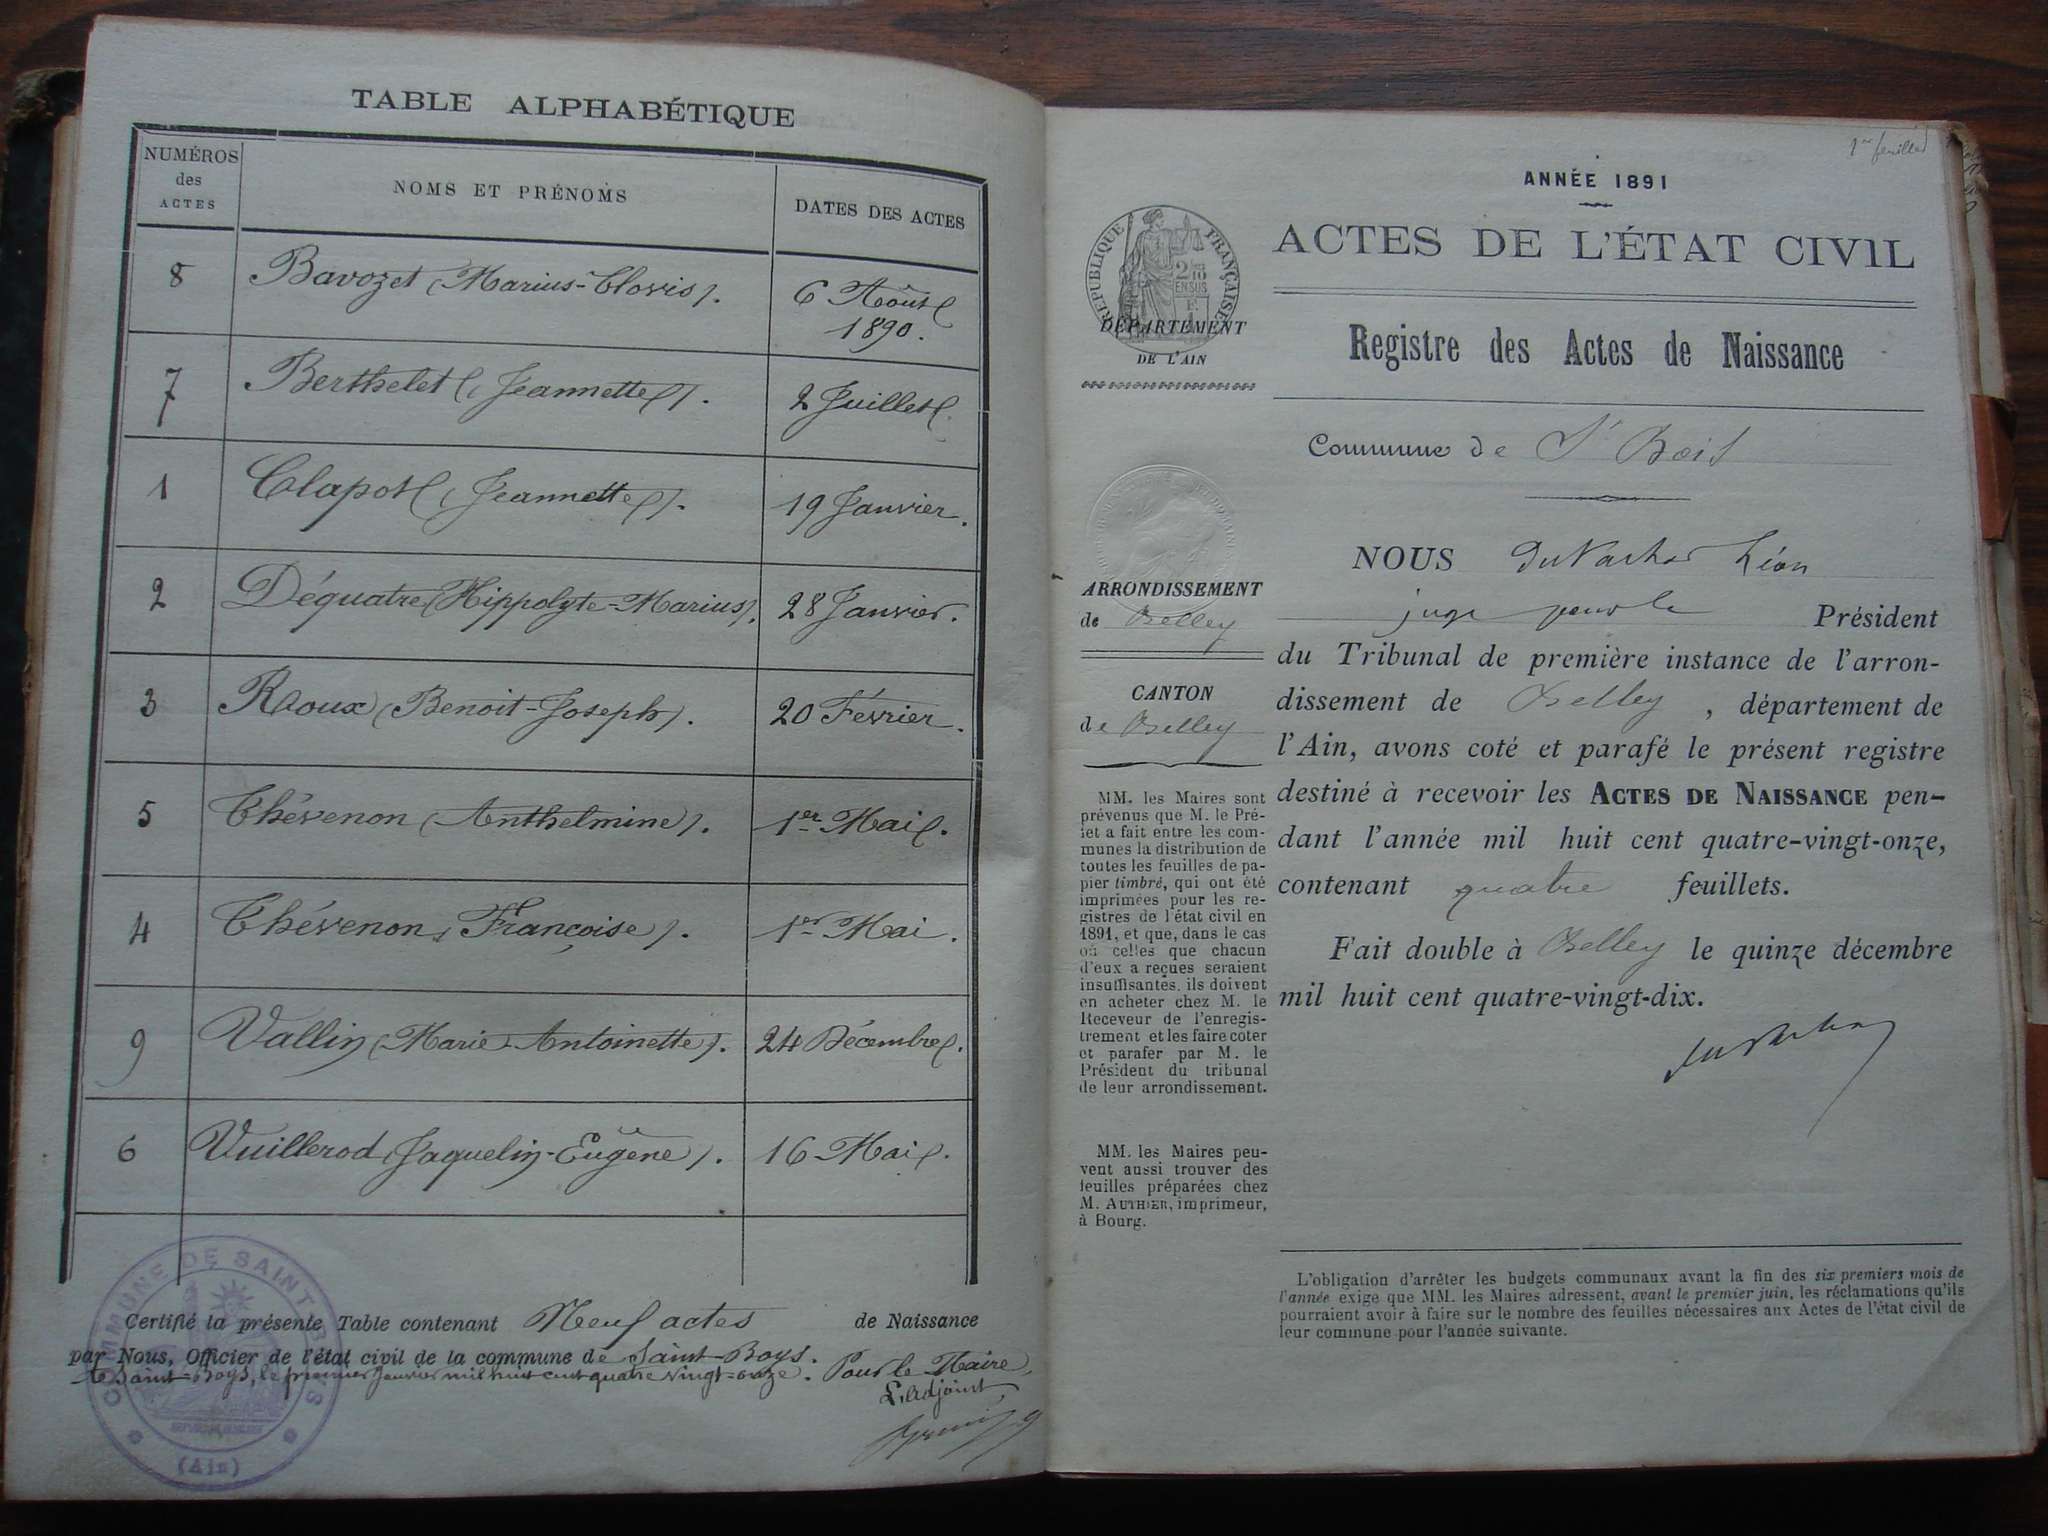 TABLE ALPHABÉTIQUE
NUMÉROS des ACTES NOMS ET PRÉNOMS DATES DES ACTES
8 Bavozet (Marius-Clovis). 6 Août 1890.
7 Berthelet (Jeannette). 2 Juillet.
1 Clapot (Jeannette). 19 Janvier.
2 Déquatre (Hippolyte-Marius). 28 Janvier.
3 Raoux (Benoit-Joseph). 20 Février.
5 Thévenon (Anthelmine). 1er Mai.
4 Thévenon, Françoise). 1er Mai.
9 Vallin (Marie-Antoinette). 24 Décembre.
6 Vuillerod (Jaquelin-Eugène). 16 Mai.
Certifié la présente Table contenant Neuf actes de Naissance
par Nous, Officier de l'état civil de la commune de Saint-Boys. Pour le Maire,
Saint-Boys, le premier Janvier mil huit cent quatre vingt-onze. L'adjoint,
COMMUNE DE SAINT BOYS
(Ain)
1er feuillet
ANNÉE 1891
ACTES DE L'ÉTAT CIVIL
RÉPUBLIQUE FRANÇAISE
DÉPARTEMENT
DE L'AIN
Registre des Actes de Naissance
Commune de St Bois
ARRONDISSEMENT
de Belley
CANTON
de Belley
MM. les Maires sont
prévenus que M. le Pré-
fet a fait entre les com-
munes la distribution de
toutes les feuilles de pa-
pier timbré, qui ont été
imprimées pour les re-
gistres de l'état civil en
1891, et que, dans le cas
où celles que chacun
d'eux a reçues seraient
insuffisantes, ils doivent
en acheter chez M. le
Receveur de l'enregis-
trement et les faire coter
et parafer par M. le
Président du tribunal
de leur arrondissement.
MM. les Maires peu-
vent aussi trouver des
feuilles préparées chez
M. AUTHIER, imprimeur,
à Bourg.
NOUS Léon
juge pour le Président
du Tribunal de première instance de l'arron-
dissement de Belley, département de
l'Ain, avons coté et parafé le présent registre
destiné à recevoir les ACTES DE NAISSANCE pen-
dant l'année mil huit cent quatre-vingt-onze,
contenant quatre feuillets.
Fait double à Belley le quinze décembre
mil huit cent quatre-vingt-dix.
L'obligation d'arrêter les budgets communaux avant la fin des six premiers mois de
l'année exige que MM. les Maires adressent, avant le premier juin, les réclamations qu'ils
pourraient avoir à faire sur le nombre des feuilles nécessaires aux Actes de l'état civil de
leur commune pour l'année suivante.